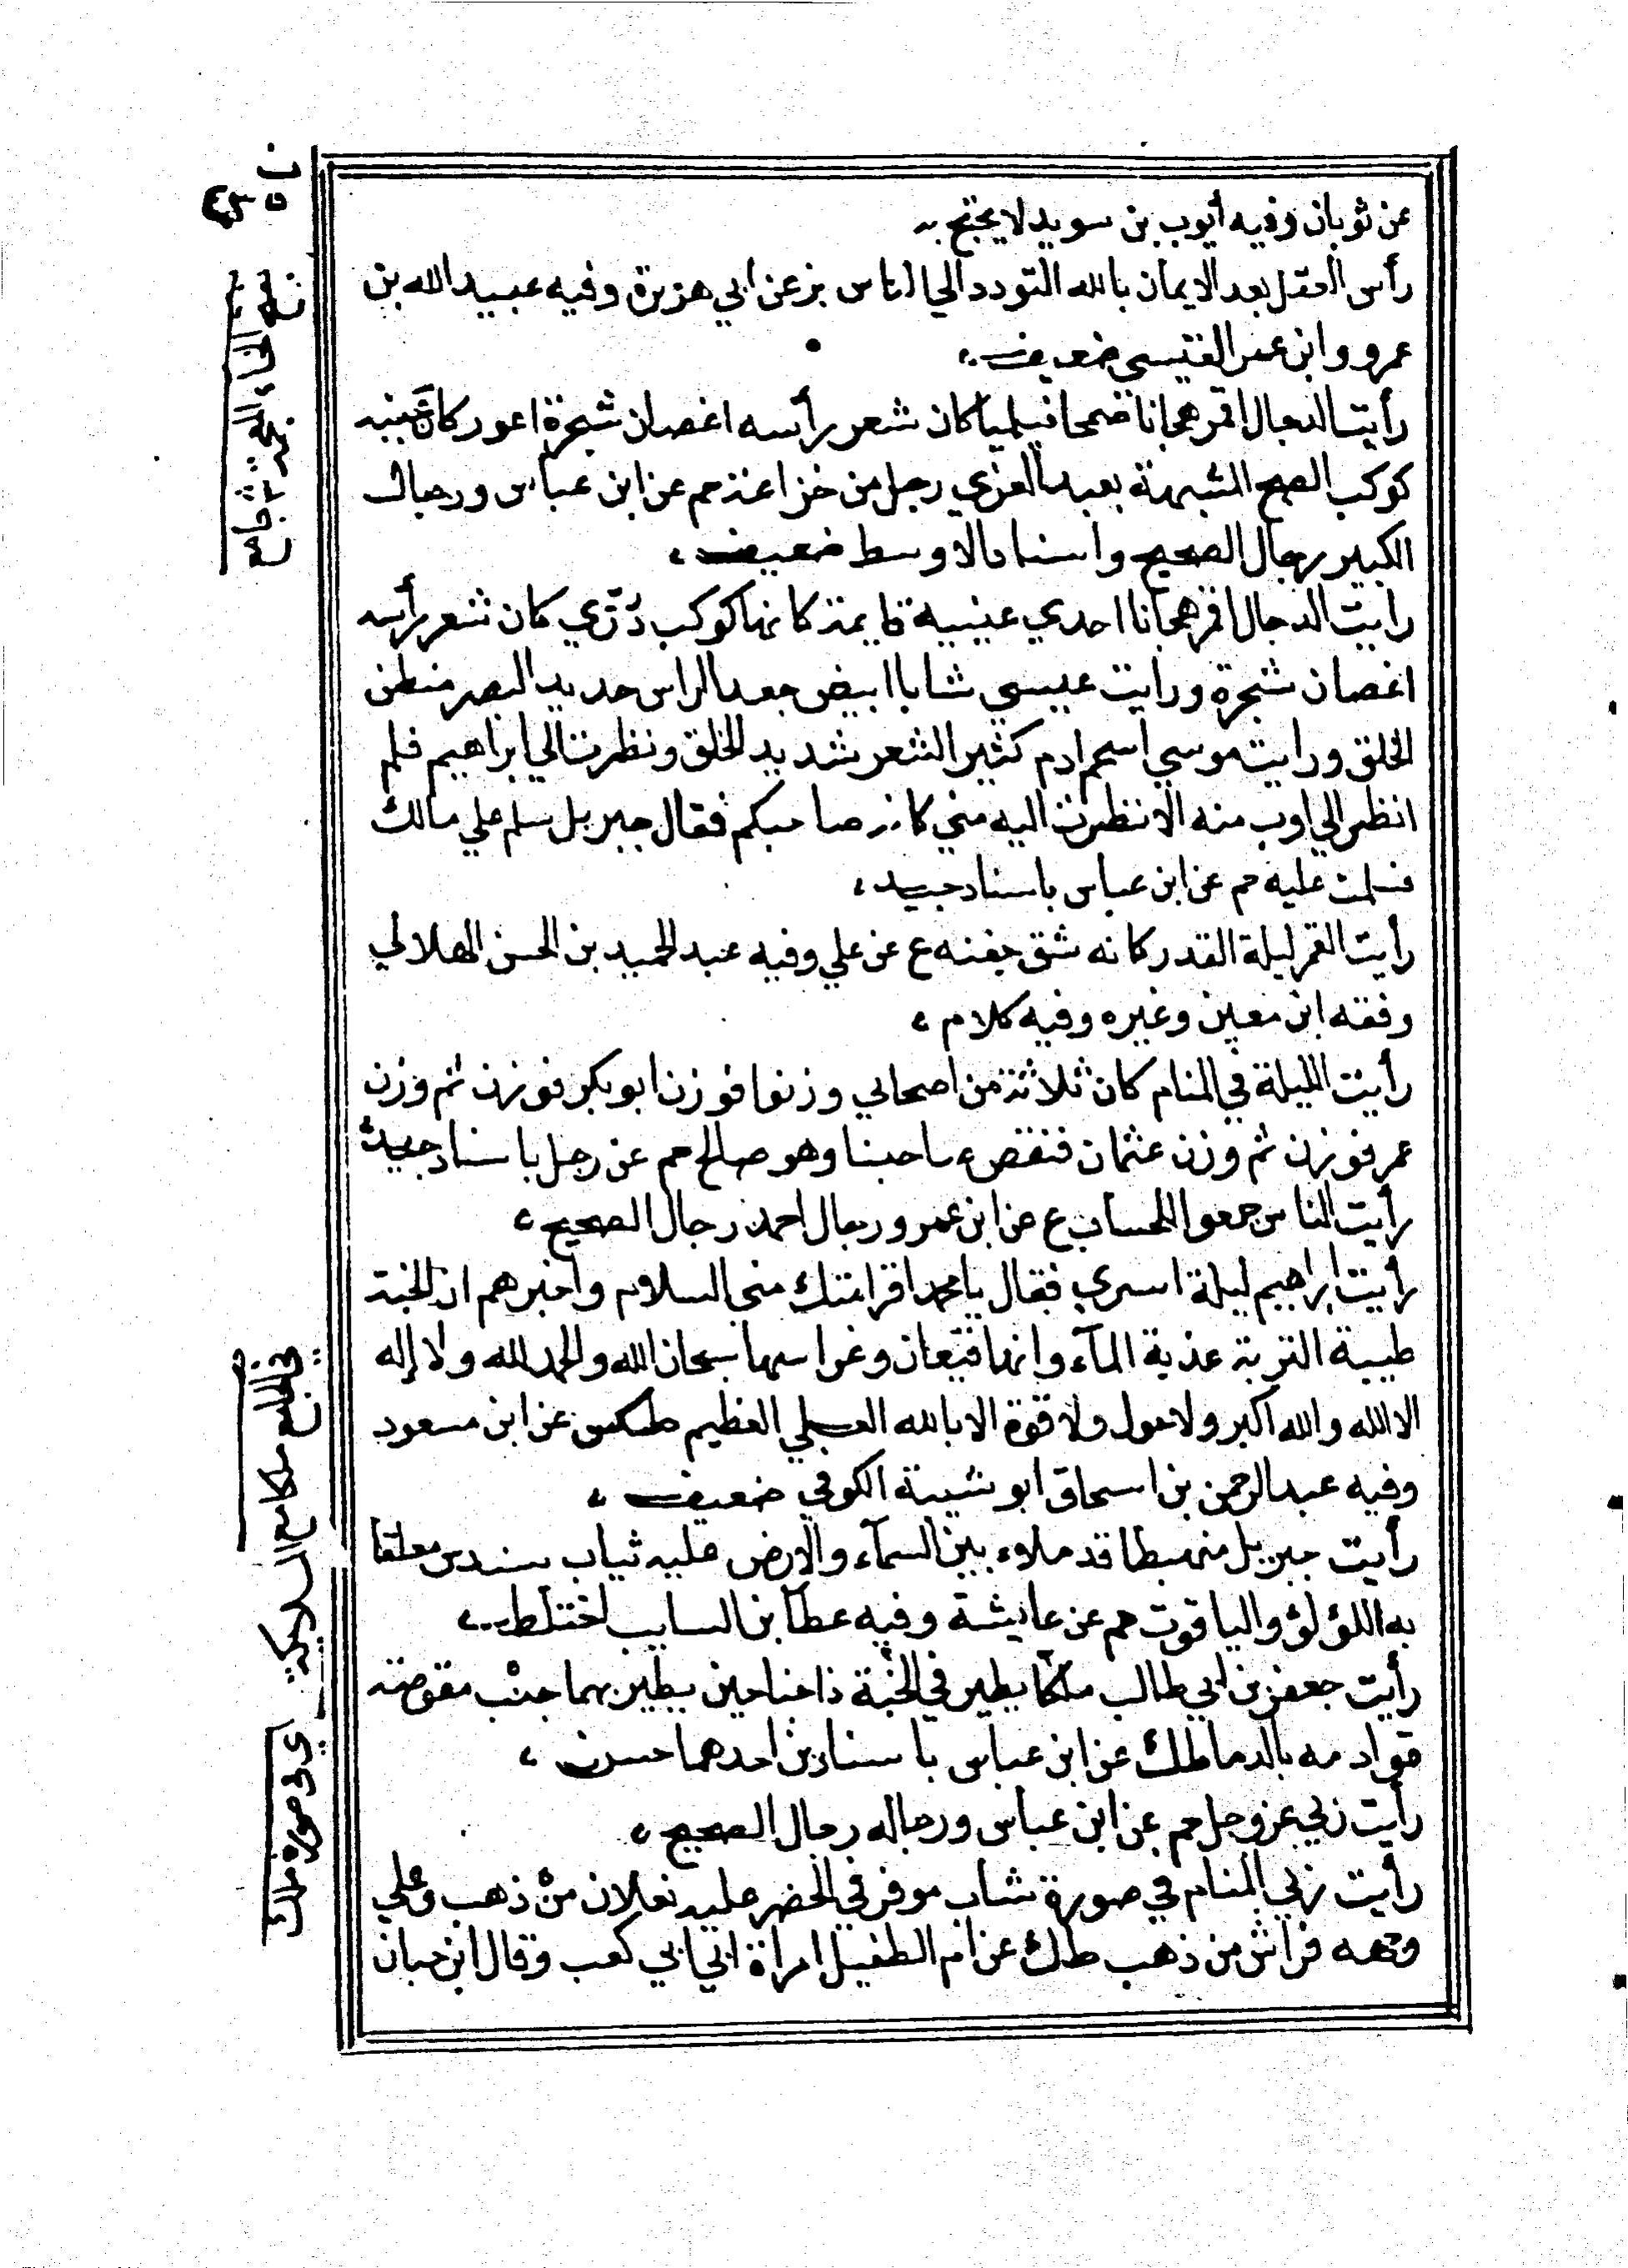 عن ثوبان وفيه أيوب بن سويد لا يحتج به
رأس العقل بعد الايمان بالله التودد الي الناس بز عن ابي هريرة وفيه عبيد الله بن
عمرو وابن عمر القيسي ضعيف
رأيت الدجال اقمر هجانا ضخما فيلميا كان شعر رأسه اغصان شجرة اعور كان عينيه
كوكب الصبح اشبهه بعبد العزي رجل من خزاعة حم عن ابن عباس ورجال
الكبير رجال الصحيح واسناد الاوسط ضعيف
رايت الدجال اقمر هجانا احدي عينيه قايمة كانها كوكب دُرّي كان شعر رأسه
اغصان شجرة ورايت عيسي شابا ابيض جعد الراس حديد البصر مبطن
الخلق ورايت موسي اسحم ادم كثير الشعر شديد الخلق ونظرت الي ابراهيم فلم
انظر الي اوب منه الا نظرت اليه مني كانه صاحبكم فقال جبريل سلم علي مالك
فسلمت عليه حم عن ابن عباس باسناد جيد
رأيت القمر ليلة القدر كانه شق جفنه ع عن علي وفيه عبد الحميد بن الحسن الهلالي
وفقه ابن معين وغيره وفيه كلام
رأيت الليلة في المنام كان ثلاثة من اصحابي وزنوا فوزن ابو بكر فوزن ثم وزن
عمر فوزن ثم وزن عثمان فنقص صاحبنا وهو صالح حم عن رجل باسناد جيد
رأيت الناس جمعوا للحساب ع عن ابن عمر ورجال احمد رجال الصحيح
رأيت ابراهيم ليلة اسري فقال يا محمد اقرا امتك مني السلام واخبرهم ان الجنة
طيبة التربة عذبة المآء وانها قيعان وغراسها سبحان الله والحمد لله ولا إله
الا الله والله اكبر ولا حول ولا قوة الا بالله العلي العظيم طكس عن ابن مسعود
وفيه عبد الرحمن بن اسحاق ابو شيبة الكوفي ضعيف
رأيت جبريل منهبطا قد ملاء بين السمآء والارض عليه ثياب سندس معلقا
به اللؤلؤ والياقوت حم عن عايشة وفيه عطآ بن السايب اختلط
رأيت جعفر بن ابي طالب ملكا يطير في الجنة ذا جناحين يطير بهما حيث مقصوصة
قوادمه بالدما طك عن ابن عباس باسنادين احدهما حسن
رأيت ربي عز وجل حم عن ابن عباس ورجاله رجال الصحيح
رأيت ربي المنام في صورة شاب موفر في الخضر عليه نعلان من ذهب وعلي
وجهه فراش من ذهب طك عن ام الطفيل امرأة ابي ابي كعب وقال ابن حبان